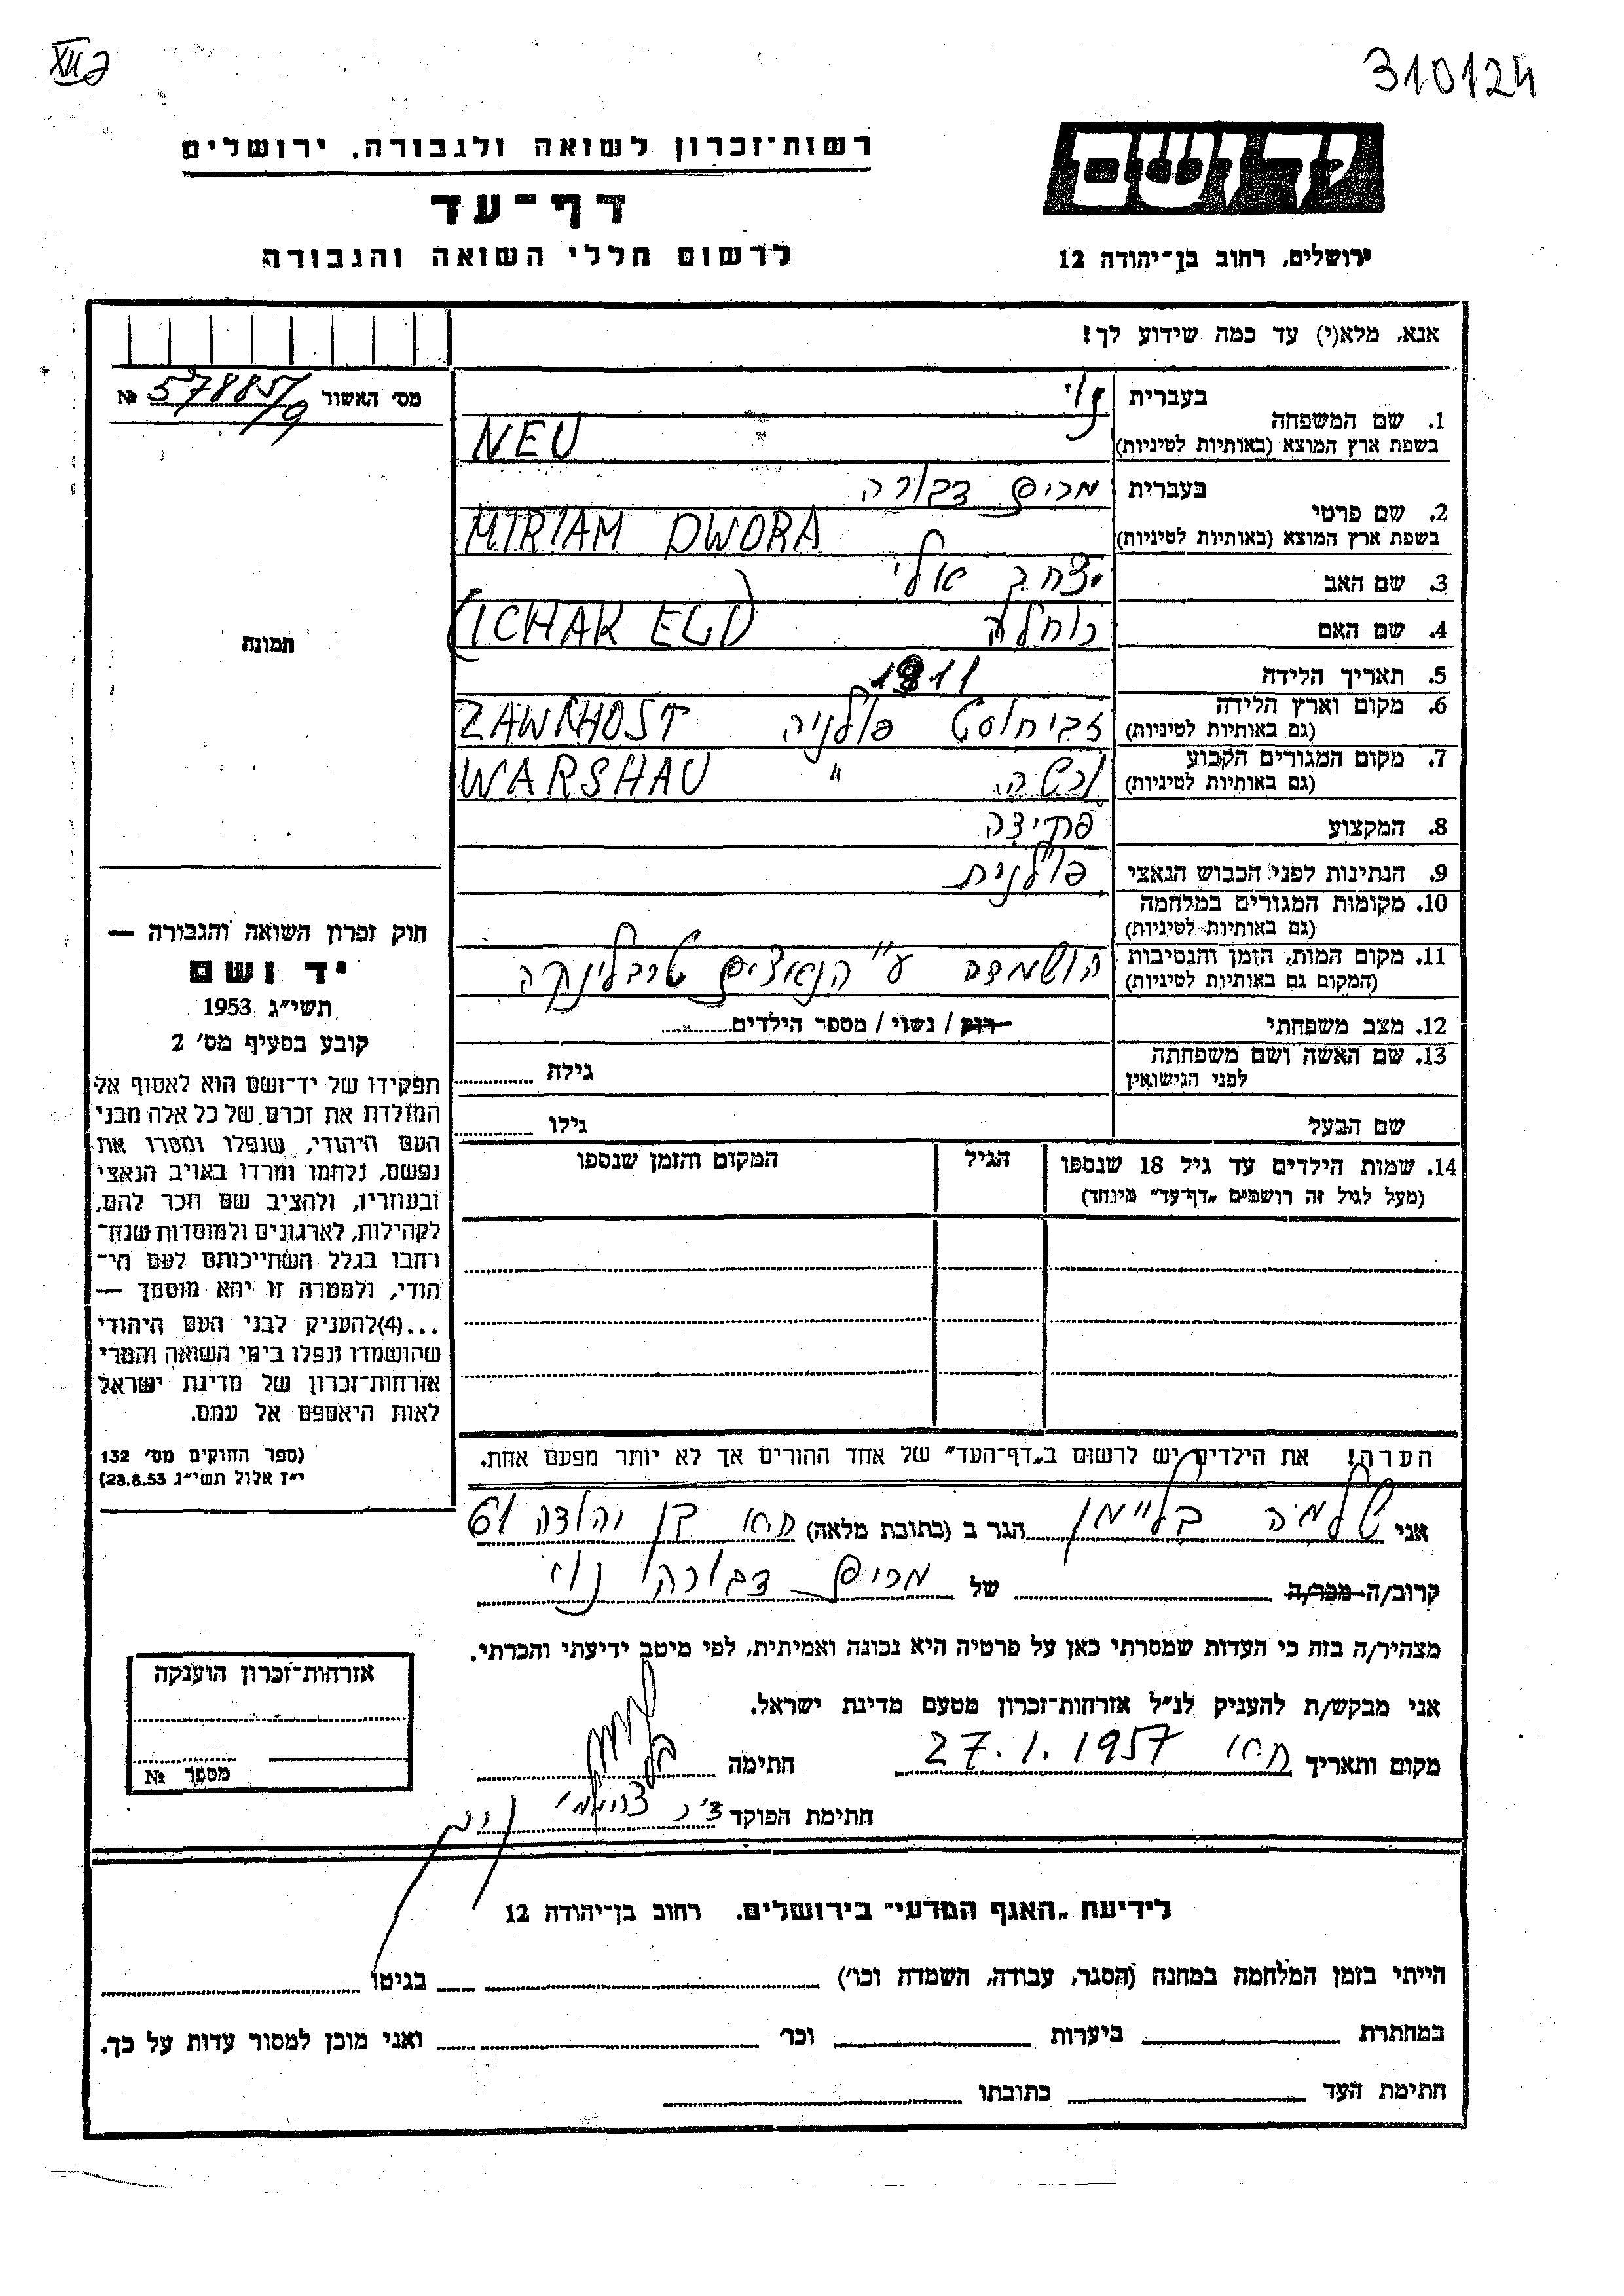 XII 2
310124
יד ושם
ירושלים, רחוב בן-יהודה 12
רשות-זכרון לשואה ולגבורה, ירושלים
דף-עד
לרשום חללי השואה והגבורה
אנא, מלא(י) עד כמה שידוע לך!
מס׳ האשור № 57885/9
תמונה
1. שם המשפחה
בעברית נוי
בשפת ארץ המוצא (באותיות לטיניות) NEU
2. שם פרטי
בעברית מרים דבורה
בשפת ארץ המוצא (באותיות לטיניות) MIRIAM DWORA
3. שם האב יצחק אלי
4. שם האם רוחלה (ICHAK ELI)
5. תאריך הלידה 1911
6. מקום וארץ הלידה זביחוסט פולניה ZAWICHOST
(גם באותיות לטיניות)
7. מקום המגורים הקבוע ורשה " WARSHAU
(גם באותיות לטיניות)
8. המקצוע פקידה
9. הנתינות לפני הכבוש הנאצי פולנית
10. מקומות המגורים במלחמה
(גם באותיות לטיניות)
11. מקום המות, הזמן והנסיבות הושמדה ע"י הנאצים טרבלינקה
(המקום גם באותיות לטיניות)
12. מצב משפחתי רווק / נשוי / מספר הילדים
13. שם האשה ושם משפחתה גילה
לפני הנישואין
שם הבעל גילו
14. שמות הילדים עד גיל 18 שנספו הגיל המקום והזמן שנספו
(מעל לגיל זה רושמים „דף-עד" מיוחד)
הערה! את הילדים יש לרשום ב„דף-העד" של אחד ההורים אך לא יותר מפעם אחת.
חוק זכרון השואה והגבורה —
יד ושם
תשי״ג 1953
קובע בסעיף מס׳ 2
תפקידו של יד-ושם הוא לאסוף אל
המולדת את זכרם של כל אלה מבני
העם היהודי, שנפלו ומסרו את
נפשם, נלחמו ומרדו באויב הנאצי
ובעוזריו, ולהציב שם וזכר להם,
לקהילות, לארגונים ולמוסדות שנח-
רבו בגלל השתייכותם לעם הי-
הודי, ולמטרה זו יהא מוסמך —
...(4)להעניק לבני העם היהודי
שהושמדו ונפלו בימי השואה והמרי
אזרחות-זכרון של מדינת ישראל
לאות היאספם אל עמם.
(ספר החוקים מס׳ 132
י״ז אלול תשי״ג 28.8.53)
אני שלמה בליימן הגר ב (כתובת מלאה) בן יהודה 61
קרוב/ה מכר/ה של מרים דבורה נוי
מצהיר/ה בזה כי העדות שמסרתי כאן על פרטיה היא נכונה ואמיתית, לפי מיטב ידיעתי והכרתי.
אני מבקש/ת להעניק לנ״ל אזרחות-זכרון מטעם מדינת ישראל.
מקום ותאריך 27.1.1957 חתימה
חתימת הפוקד
אזרחות-זכרון הוענקה
מספר №
לידיעת „האגף המדעי" בירושלים. רחוב בן-יהודה 12
הייתי בזמן המלחמה במחנה (הסגר, עבודה, השמדה וכו׳) בגיטו
במחתרת ביערות וכו׳ ואני מוכן למסור עדות על כך.
חתימת העד כתובתו